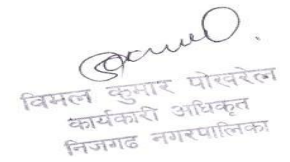 विमल कुमार पोखरेल
कार्यकारी अधिकृत
निजगढ नगरपालिका